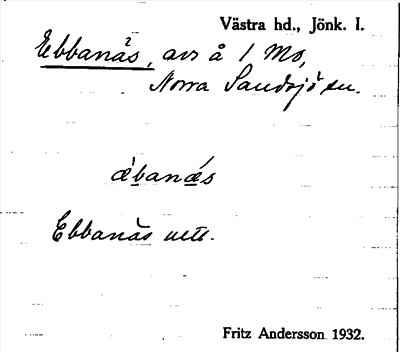 Västra hd., Jönk. l.
Ebbanäs, avs å 1 Mo,
Norra Sandsjö sn.
ǽbanǽs
Ebbanäs utt.
Fritz Andersson 1932.